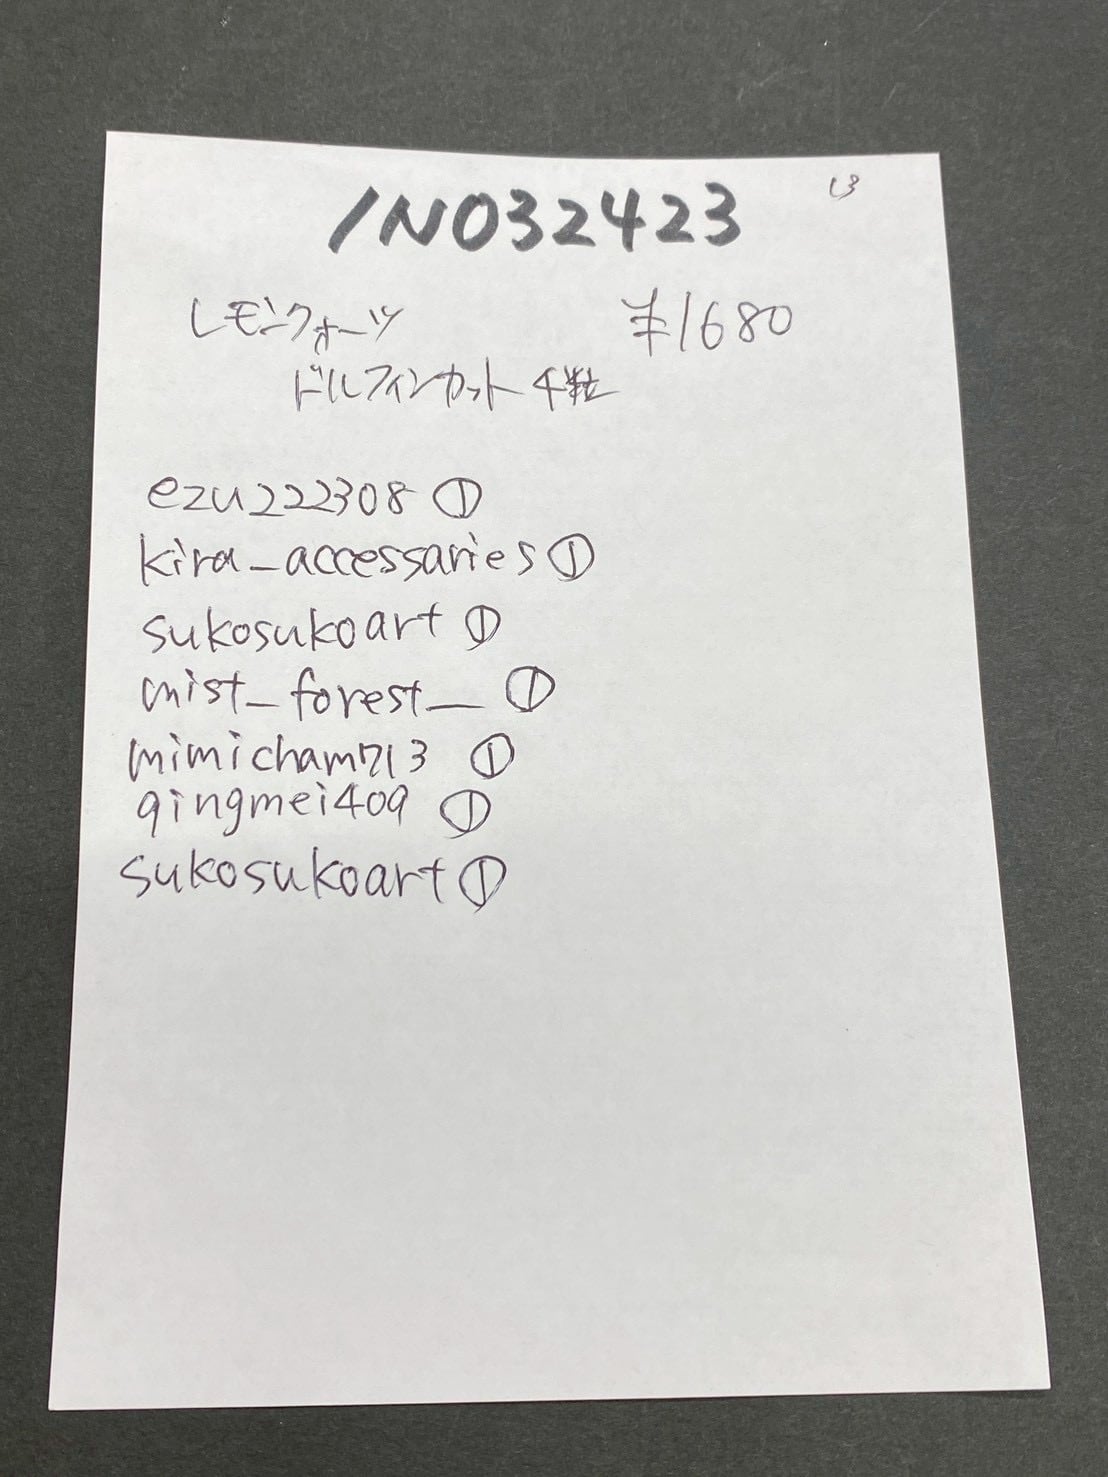 13
INO32423
レモンクォーツ ¥1680
ドルフィンカット4粒
ezu222308 ①
kira_accessaries ①
sukosukoart ①
mist_forest_ ①
mimicham713 ①
qingmei409 ①
sukosukoart ①